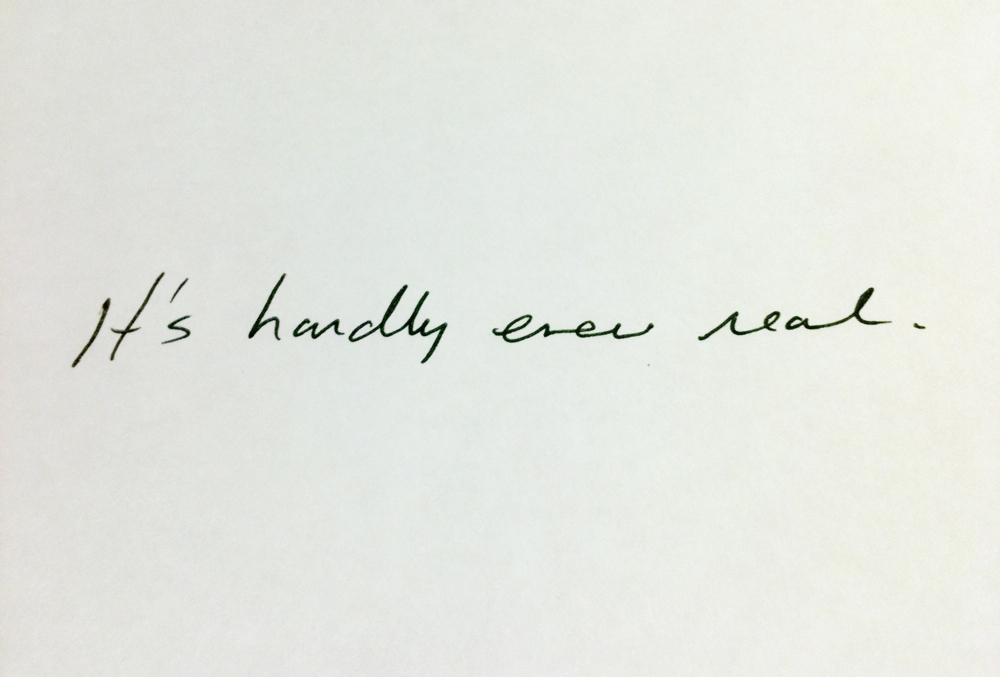 It's hardly ever real.